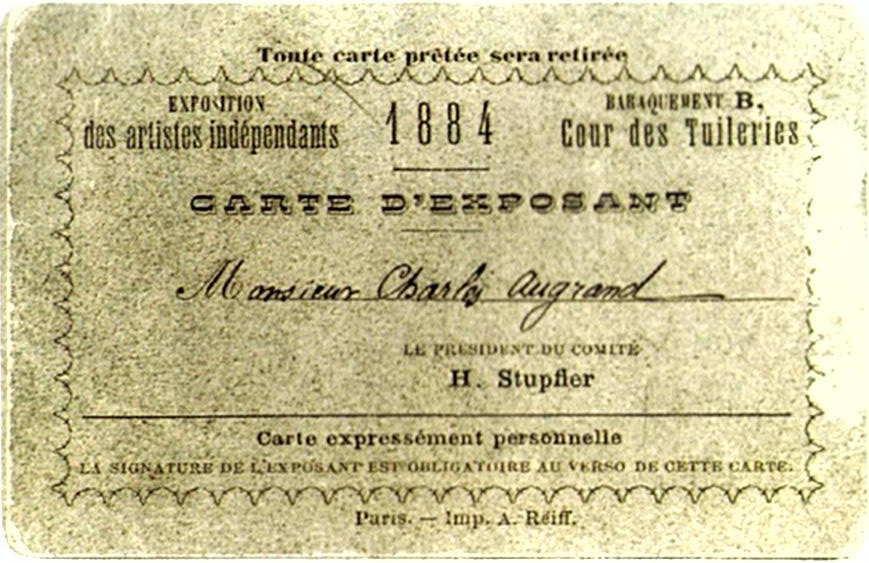 Toute carte prêtée sera retirée
EXPOSITION
des artistes indépendants
1884
BARAQUEMENT B,
Cour des Tuileries
CARTE D'EXPOSANT
Monsieur Charles Augrand
LE PRESIDENT DU COMITÉ
H. Stupfler
Carte expressément personnelle
LA SIGNATURE DE L'EXPOSANT EST OBLIGATOIRE AU VERSO DE CETTE CARTE.
Paris. — Imp. A. Reiff.